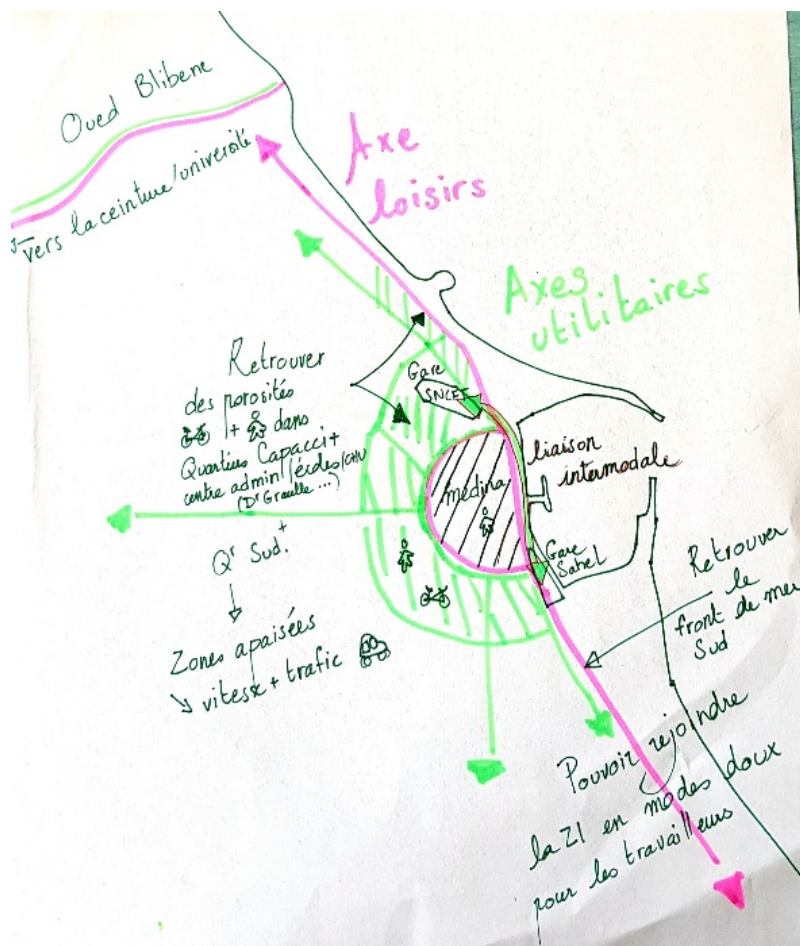 Oued Blibene
vers la ceinture/université
Axe
loisirs
Axes
utilitaires
Retrouver
des porosités
+ dans
Quartiers Capacci +
centre admin/écoles/CHU
(Dr Graulle ...)
Gare
SNCFT
liaison
intermodale
médina
Qr Sud.
+
Gare
Sahel
Zones apaisées
↘ vitesse + trafic
Retrouver
le
front de mer
Sud
Pouvoir rejoindre
la ZI en modes doux
pour les travailleurs